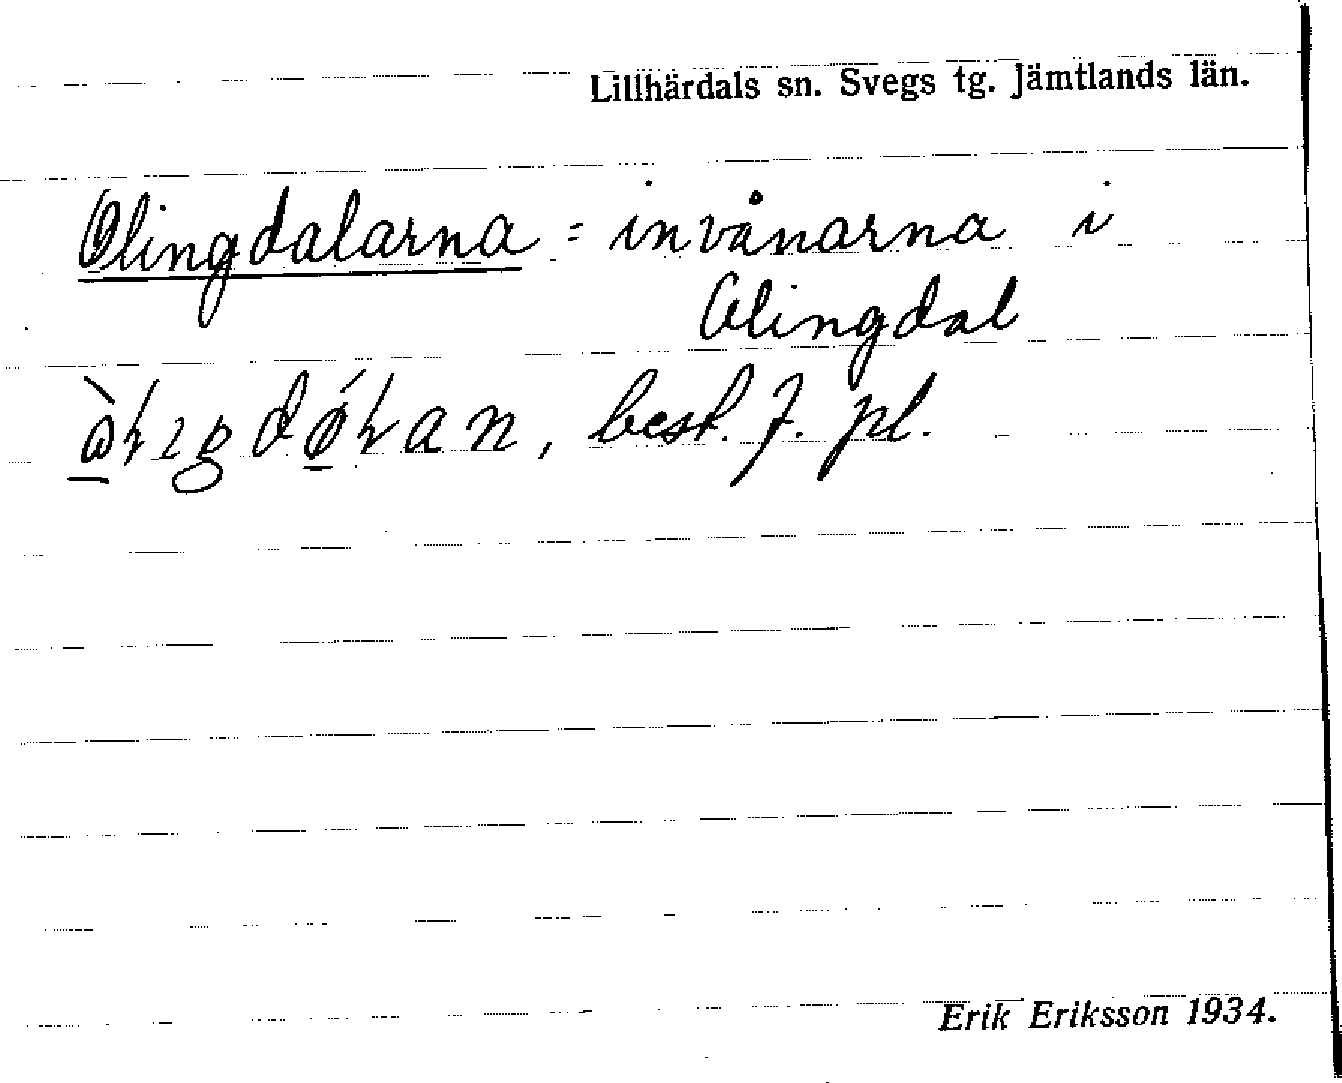 Lillhärdals sn. Svegs tg. Jämtlands län.
Olingdalarna = invånarna i
Olingdal
best. f. pl.
Erik Eriksson 1934.